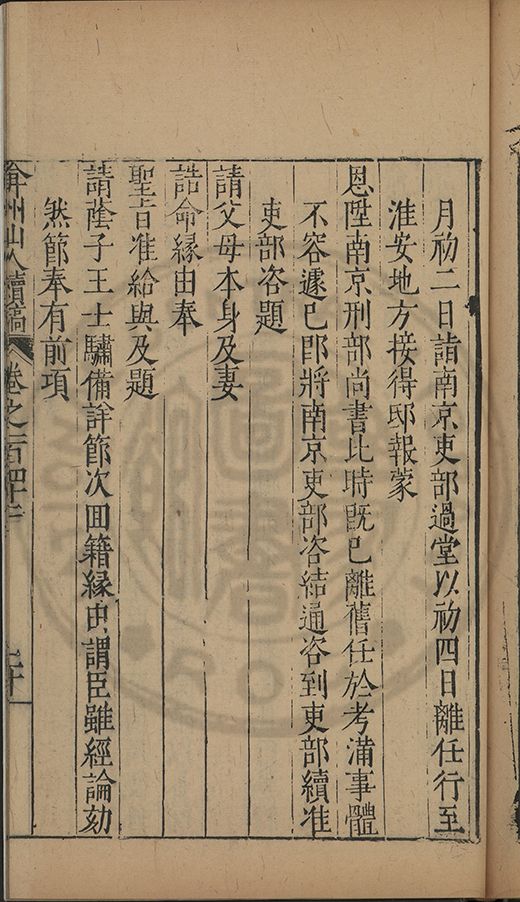 月初二日諸南京吏部過堂以初四日離任行至
淮安地方接得邸報蒙
恩陞南京刑部尚書比時既已離舊任於考滿事體
不容遽已即將南京吏部咨結通咨到吏部續准
吏部咨題
請父母本身及妻
誥命緣由奉
聖旨准給與及題
請蔭子王士驌備詳節次回籍緣由謂臣雖經論劾
然節奉有前項
弇州山人續稿 卷之一百四十二